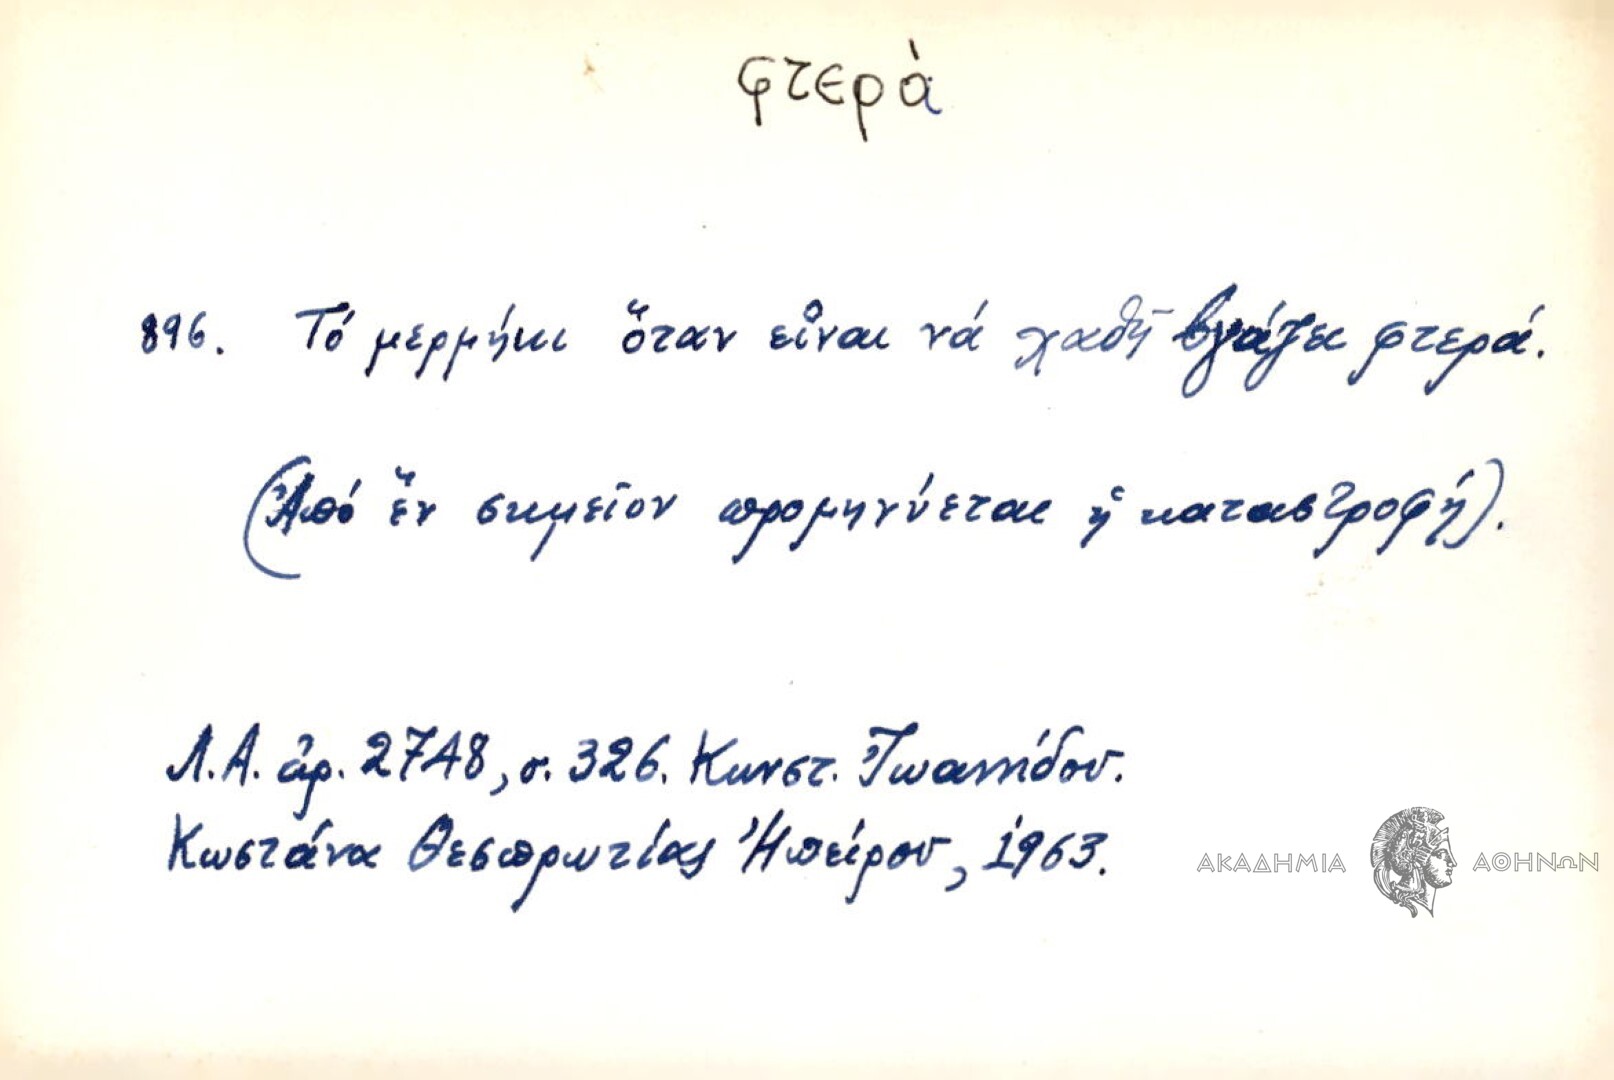 φτερὰ
896. Τό μερμήκι ὅταν εἶναι νά χαθῆ βγάζει φτερά.
(Ἀπό ἕν σημεῖον προμηνύεται ἡ καταστροφή).
Λ.Α. ἀρ. 2748, σ. 326. Κωνστ. Ἰωαννίδου.
Κωστάνα Θεσπρωτίας Ἠπείρου, 1963.
ΑΚΑΔΗΜΙΑ ΑΘΗΝΩΝ